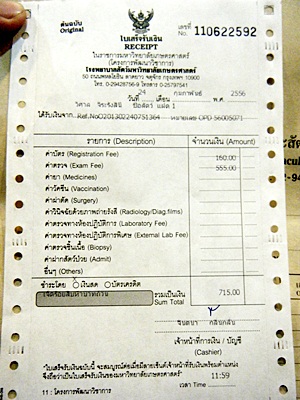 ต้นฉบับ
Original
เลขที่
No.
110622592
ใบเสร็จรับเงิน
RECEIPT
ในราชการมหาวิทยาลัยเกษตรศาสตร์
(โครงการพัฒนาวิชาการ)
โรงพยาบาลสัตว์มหาวิทยาลัยเกษตรศาสตร์
50 ถนนพหลโยธิน ลาดยาว จตุจักร กรุงเทพฯ 10900
โทร. 0-29428756-9 โทรสาร 0-25797541
24 กุมภาพันธ์ 2556
วันที่ เดือน พ.ศ.
ได้รับเงินจาก Ref.NoO201302240751364 หมายเลข OPD 56005071
รายการ (Description) จำนวนเงิน (Amount)
ค่าบัตร (Registration Fee) 160.00
ค่าตรวจ (Exam Fee) 555.00
ค่ายา (Medicines)
ค่าวัคซีน (Vaccination)
ค่าผ่าตัด (Surgery)
ค่าวินิจฉัยด้วยภาพถ่ายรังสี (Radiology/Diag.films)
ค่าตรวจทางห้องปฏิบัติการ (Laboratory Fee)
ค่าตรวจทางห้องปฏิบัติการพิเศษ (External Lab Fee)
ค่าตรวจชิ้นเนื้อ (Biopsy)
ค่าฝากสัตว์ป่วย (Admit)
อื่นๆ (Others)
ชำระโดย เงินสด บัตรเครดิต
รวมเป็นเงิน 715.00
Sum Total
เจ้าหน้าที่การเงิน / บัญชี
(Cashier)
*ใบเสร็จรับเงินฉบับนี้ จะสมบูรณ์ต่อเมื่อมีลายเซ็นต์เจ้าหน้าที่รับเงินพร้อมตำแหน่ง
จึงถือว่าเป็นใบเสร็จรับเงินของมหาวิทยาลัยเกษตรศาสตร์
11:59
เวลา Time
11 : โครงการพัฒนาวิชาการ